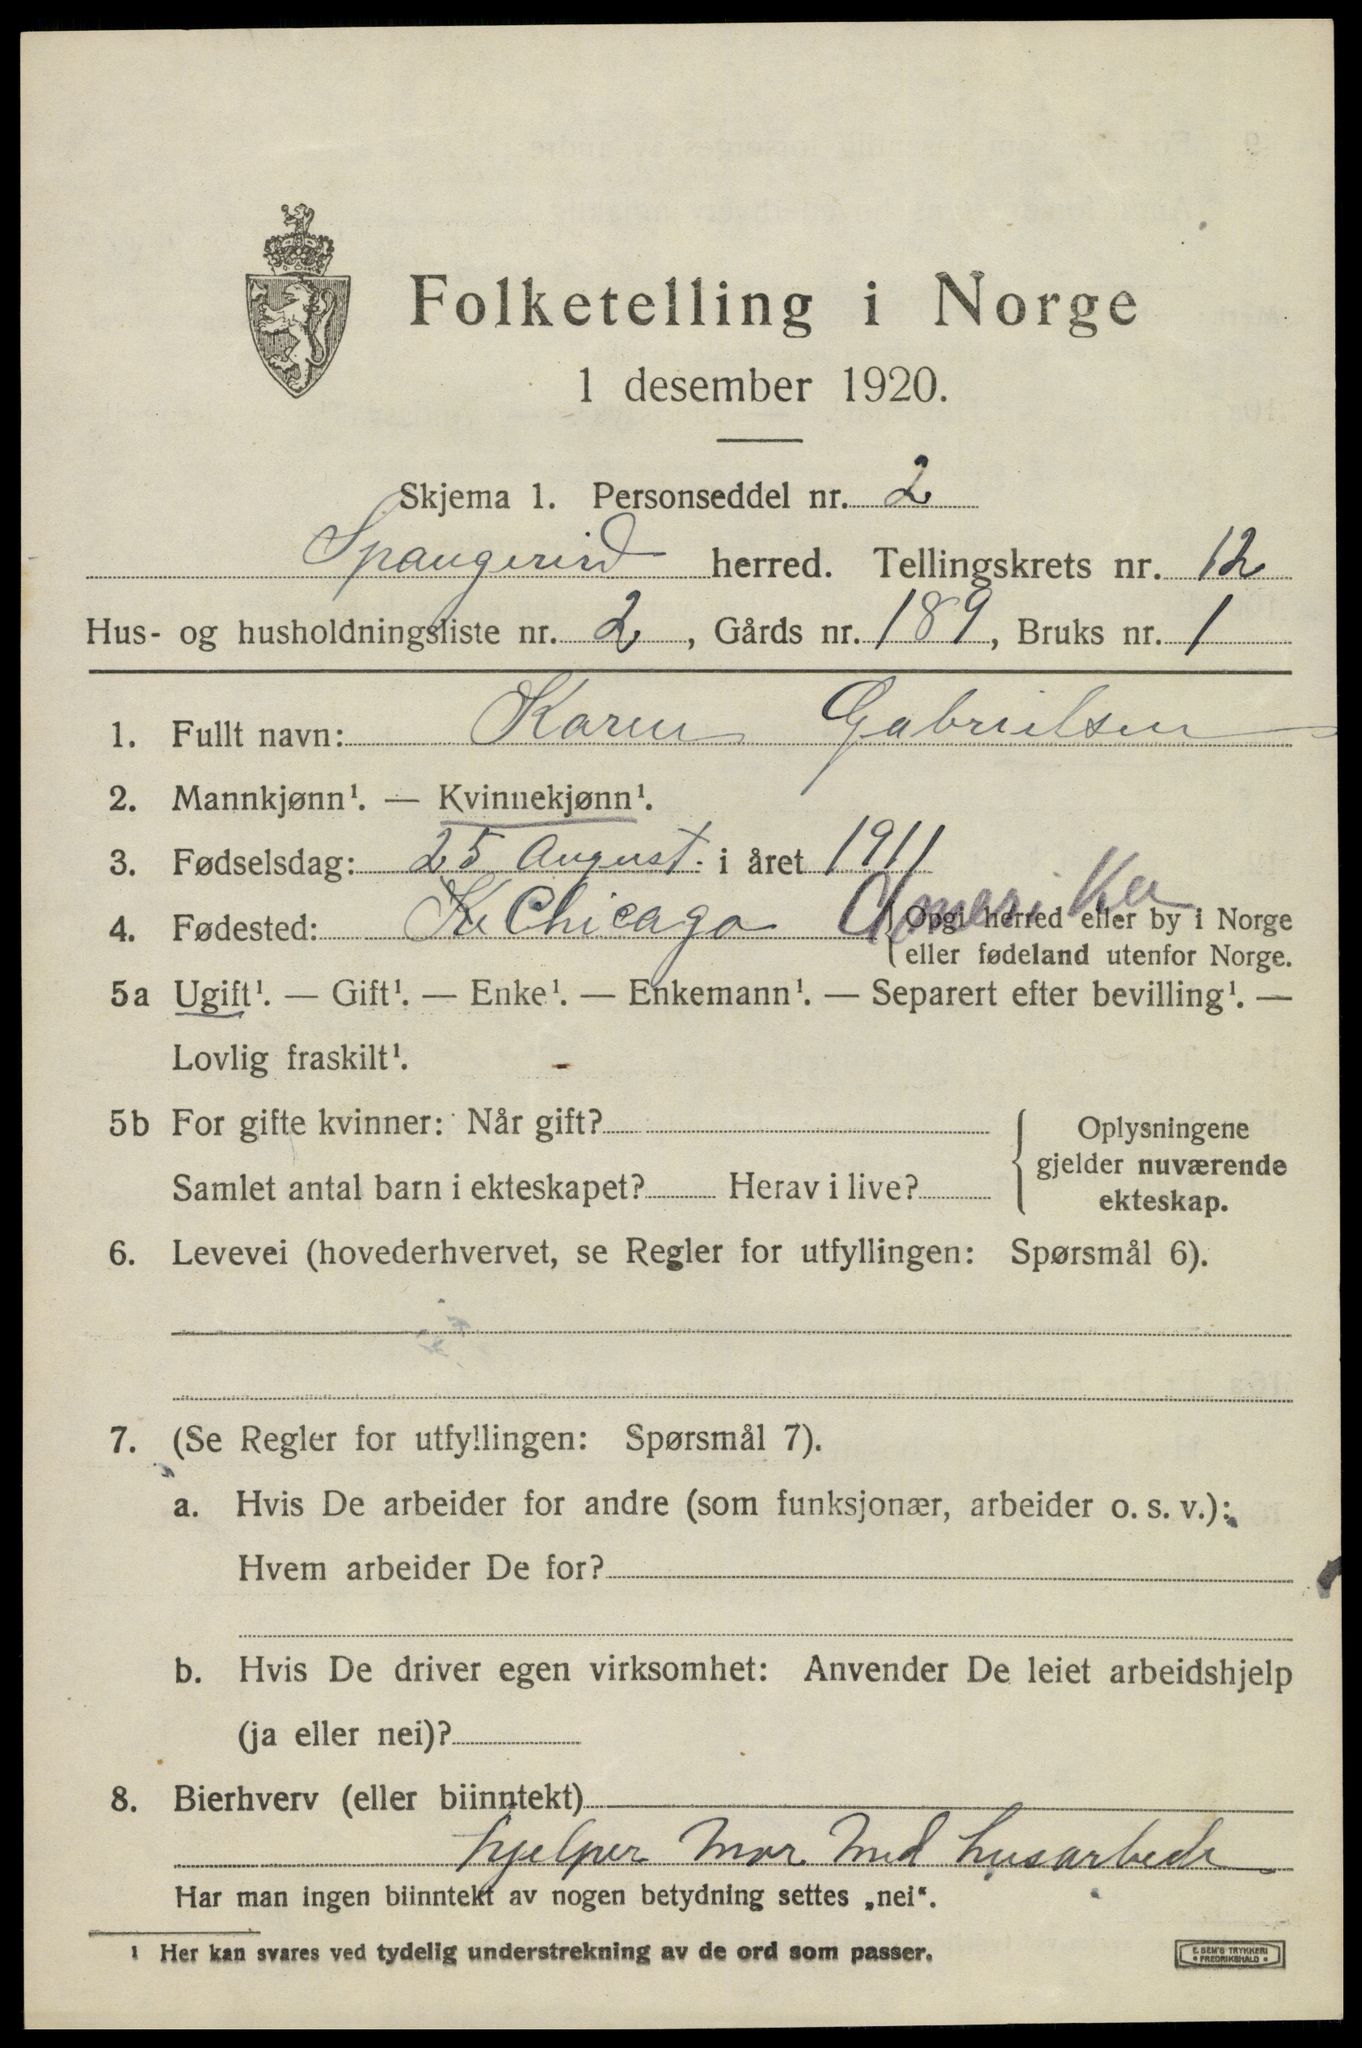 Folketelling i Norge
1 desember 1920.
Skjema 1. Personseddel nr. 2
Spangereid herred. Tellingskrets nr. 12
Hus- og husholdningsliste nr. 2, Gårds nr. 189, Bruks nr. 1
1. Fullt navn: Karen Gabrielsen
2. Mannkjønn¹. — Kvinnekjønn¹.
3. Fødselsdag: 25 August. i året 1911
4. Fødested: Chicago Amerika
Opgi herred eller by i Norge
eller fødeland utenfor Norge.
5a Ugift¹. — Gift¹. — Enke¹. — Enkemann¹. — Separert efter bevilling¹. —
Lovlig fraskilt¹.
5b For gifte kvinner: Når gift?
Samlet antal barn i ekteskapet? Herav i live?
Oplysningene
gjelder nuværende
ekteskap.
6. Levevei (hovederhvervet, se Regler for utfyllingen: Spørsmål 6).
7. (Se Regler for utfyllingen: Spørsmål 7).
a. Hvis De arbeider for andre (som funksjonær, arbeider o. s. v.):
Hvem arbeider De for?
b. Hvis De driver egen virksomhet: Anvender De leiet arbeidshjelp
(ja eller nei)?
8. Bierhverv (eller biinntekt)
hjelper Mor Med husarbede
Har man ingen biinntekt av nogen betydning settes „nei“.
¹ Her kan svares ved tydelig understrekning av de ord som passer.
E. SEM'S TRYKKERI
FREDRIKSHALD